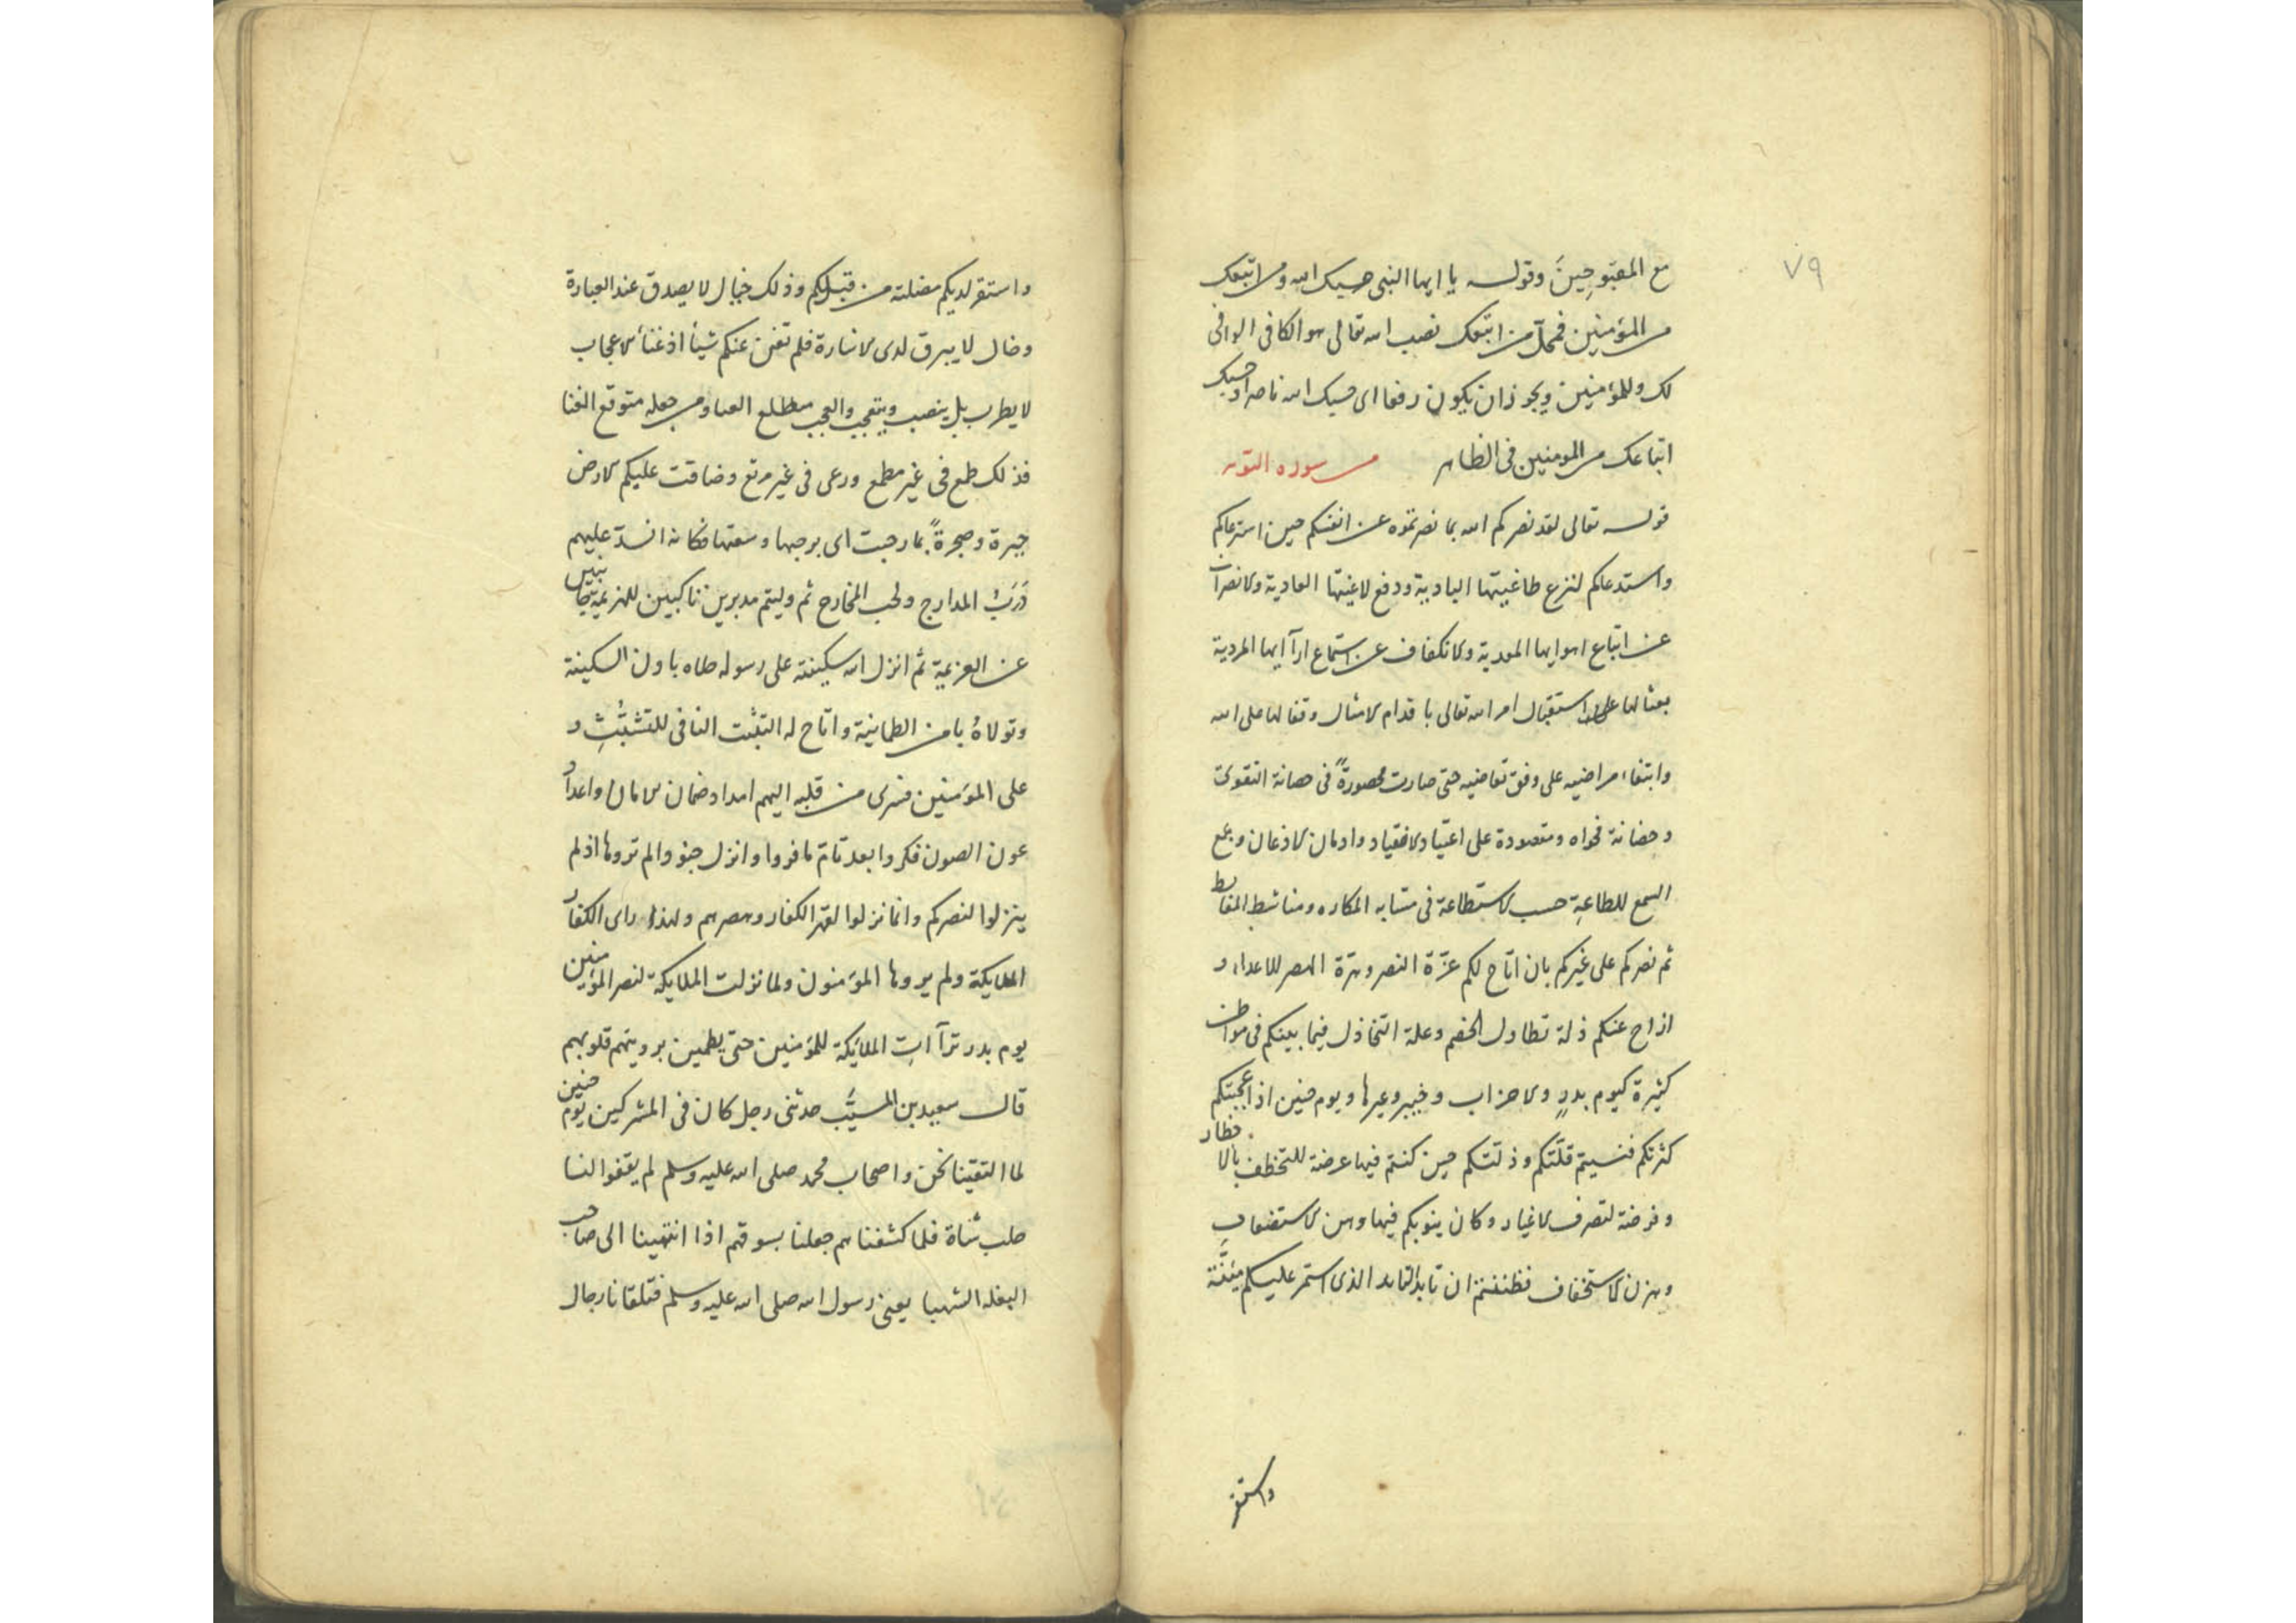 ٧٩
مع المقبوحين وقوله يا ايها النبى حسبك الله ومن اتبعك
من المؤمنين فمحل من اتبعك نصب الله تعالى هو الكافى الوافى
لك وللمؤمنين ويجوز ان يكون رفعا اى حسبك الله ناصرا وحسبك
اتباعك من المومنين فى الظاهر من سوره التوبه
قوله تعالى لقد نصركم الله بما نصرتموه عن انفسكم حين استرعاكم
واستدعاكم لنزع طاغيتها البادية ودفع لاغيتها العادية والانصراف
عن اتباع اهوايها المودية والانكفاف عن استماع ارآايها المردية
بعثا لها على استقبال امر الله تعالى باقدام الامتثال وقفا لها على الله
وابتغاء مراضيه على وفق تقاضيه حتى صارت محصورة فى حصانة التقوى
وحضانة فحواه ومقصودة على اعتياد الانقياد وادمان الاذعان وجمع
السمع للطاعة حسب الاستطاعة فى متشابه المكاره ومناشط المغابط
ثم نصركم على غيركم بان اتاح لكم عزة النصر وهزة الهصر للاعداء و
ازاح عنكم ذلة تطاول الخصم وعلة التخاذل فيما بينكم فى مواطن
كثيرة كيوم بدر والاحزاب وخيبر وغيرها ويوم حنين اذ اعجبتكم
كثرتكم فنسيتم قلتكم وذلتكم حين كنتم فيها عرضة للتخطف بالاخطار
وفرضة لتصرف الاغيار وكان ينوبكم فيها وهن الاستضعاف
وهزل الاستخفاف فظننتم ان الذى استمر عليكم
واستقر
واستقر لديكم مضلته من قبلكم وذلك خيال لا يصدق عند العبارة
وضال لا يبرق لدى الاشارة فلم تغن عنكم شيأ اذ غناء الاعجاب
لا يطرب بل ينصب ويتعب والعجب مطلع العنا ومن جعله متوقع الغنا
فذلك طمع فى غير مطمع ورعى فى غير مرتع وضاقت عليكم الارض
حيرة وضجرة بما رحبت اى برحبها وسعتها فكانه انسد عليهم
درب المدارج ولحب المخارج ثم وليتم مدبرين ناكبين للهزيمة
عن العزيمة ثم انزل الله سكينته على رسوله طاه باون السكينة
وتولاه بامن الطمانينة واتاح له التثبت النافى للتشتت و
على المؤمنين فسرى من قلبه اليهم امداد ضمان الامان واعداد
عون الصون فكروا بعد ما فروا وانزل جنودا لم تروها اذ لم
ينزلوا لنصركم وانما نزلوا لقهر الكفار وهصرهم ولهذا راى الكفار
الملايكة ولم يروها المؤمنون ولما نزلت الملايكة لنصر المؤمنين
يوم بدر ترآات الملائكة للمؤمنين حتى يطمين برويتهم قلوبهم
قال سعيد بن المسيب حدثنى رجل كان فى المشركين يوم حنين
لما التقينا نحن واصحاب محمد صلى الله عليه وسلم لم يقفوا لنا
حلب شاة فلما كشفناهم جعلنا بسوقهم اذا انتهينا الى صاحب
البغله الشهبا يعنى رسول الله صلى الله عليه وسلم فتلقانا رجال